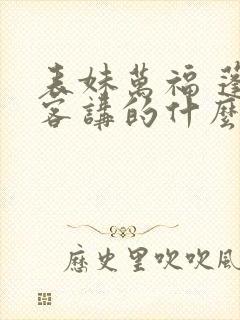 表妹萬福 蓬
客講的什麼
歷史里吹吹風